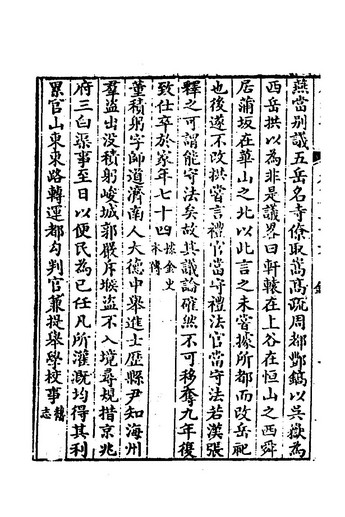 燕當別議五岳名寺僚取嵩高疏周都酆鎬以吳嶽為
西岳拱以為非是議畧曰軒轅在上谷在恒山之西舜
居蒲坂在華山之北以此言之未嘗據所都而改岳祀
也後遂不改拱嘗言禮官當守禮法官當守法若漢張
釋之可謂能守法矣故其議論確然不可移奪九年復
致仕卒於家年七十四據金史本傳
董積躬字師道濟南人大德中舉進士歷縣尹知海州
羣盜出没積躬峻城郭嚴斥堠盜不入境尋規措京兆
府三白渠事至日以便民為己任凡所灌溉均得其利
累官山東東路轉運都勾判官兼提舉學校事舊志